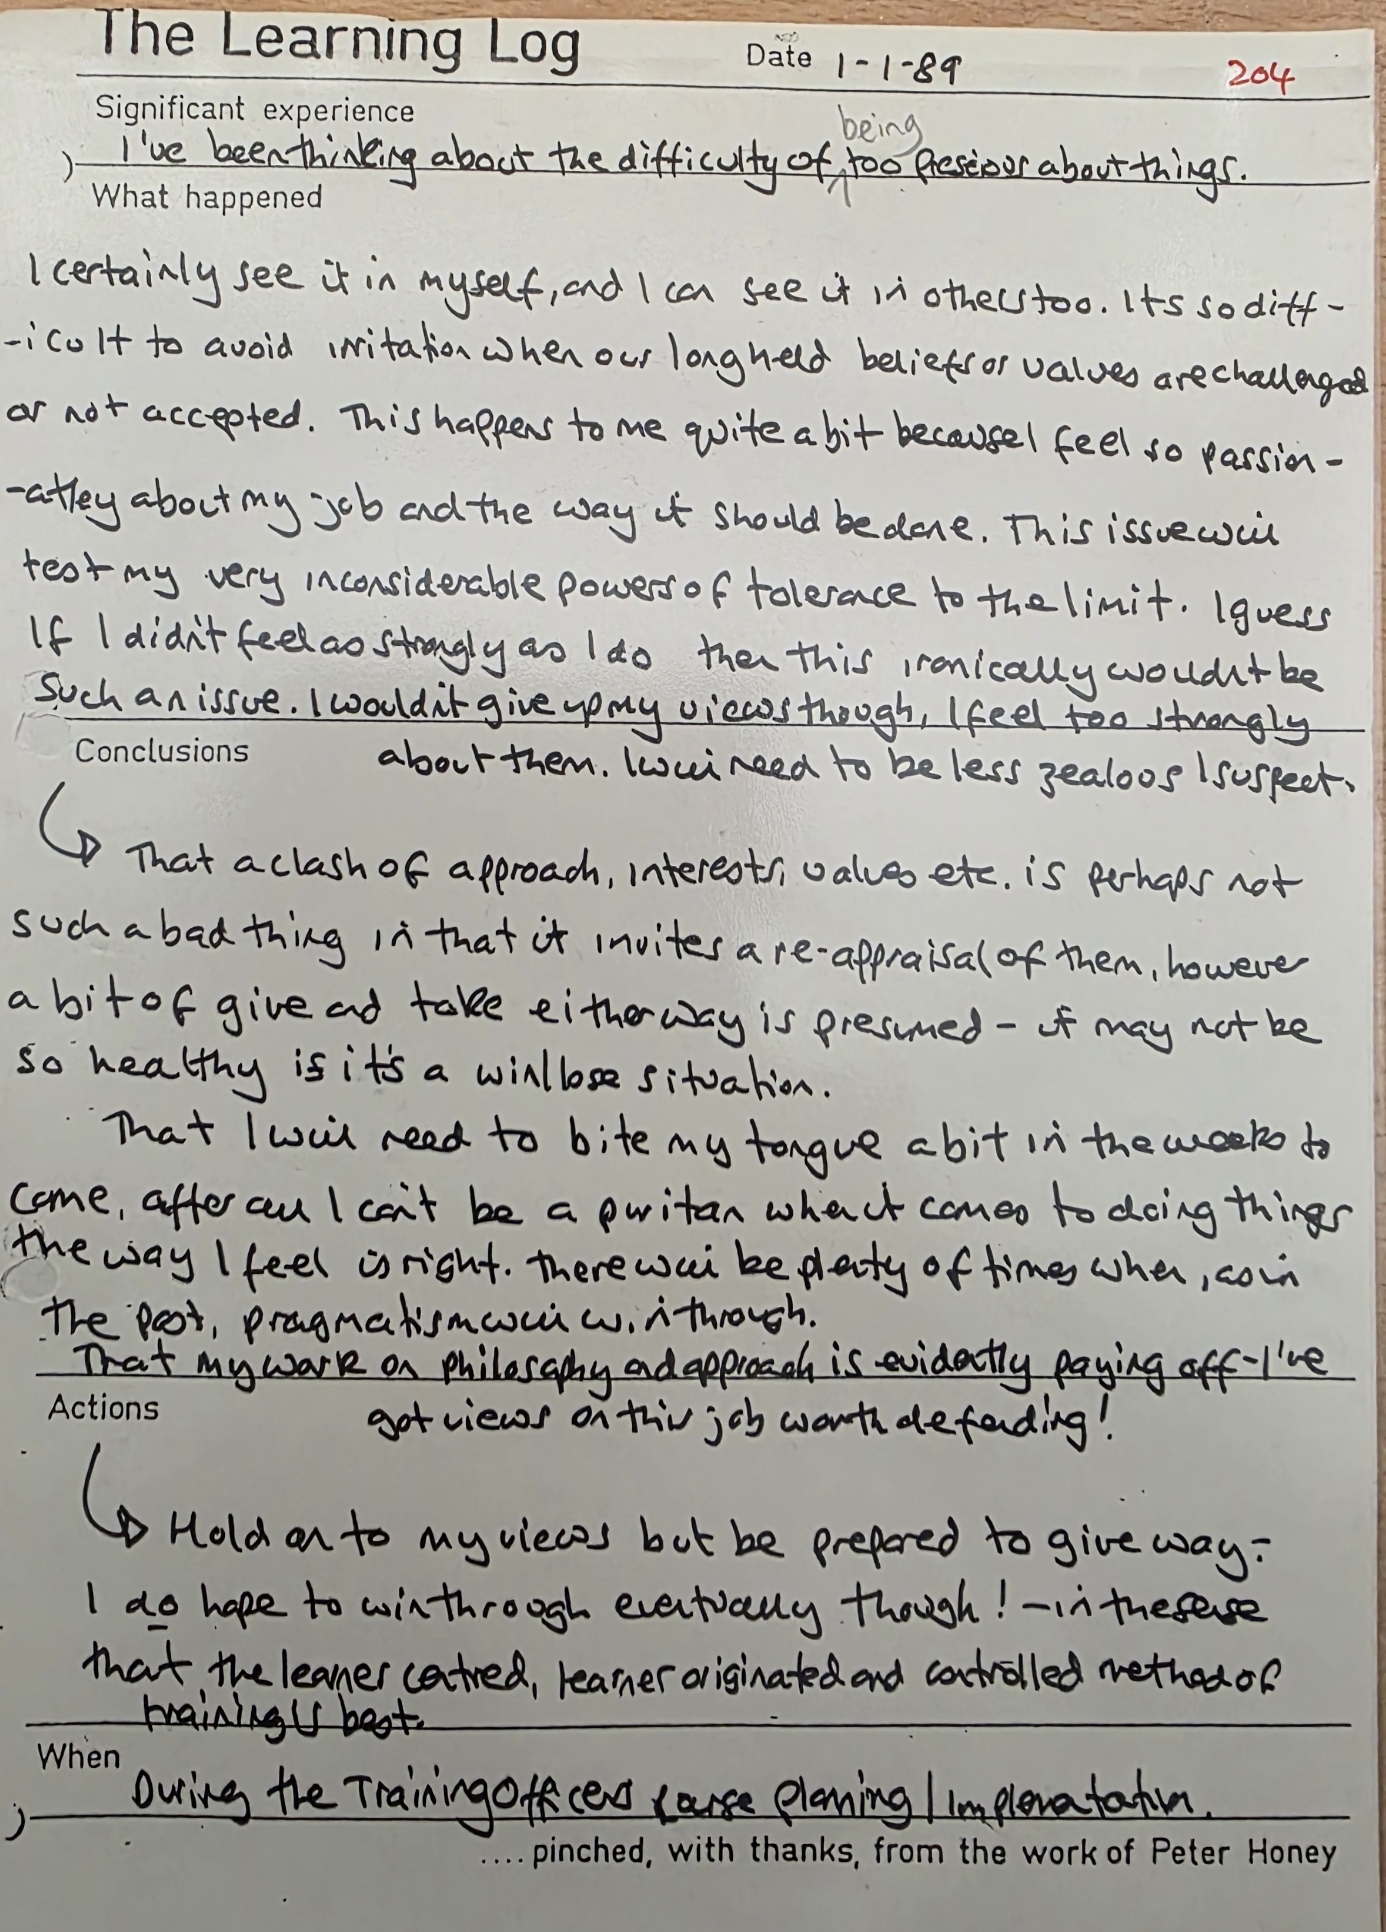 The Learning Log
Date 1-1-89
204
Significant experience
being
I've been thinking about the difficulty of too precious about things.
What happened
I certainly see it in myself, and I can see it in others too. Its so diff-
-icult to avoid irritation when our long held beliefs or values are challenged
or not accepted. This happens to me quite a bit because I feel so passion-
-atley about my job and the way it should be done. This issue will
test my very inconsiderable powers of tolerance to the limit. I guess
If I didn't feel as strongly as I do then this ironically wouldn't be
such an issue. I wouldn't give up my views though, I feel too strongly
Conclusions
about them. I will need to be less zealous I suspect.
That a clash of approach, interests, values etc. is perhaps not
such a bad thing in that it invites a re-appraisal of them, however
a bit of give and take either way is presumed - it may not be
so healthy is it's a win/lose situation.
That I will need to bite my tongue a bit in the weeks to
come, after all I can't be a puritan when it comes to doing things
the way I feel is right. There will be plenty of times when, as in
the past, pragmatism will win through.
That my work on philosophy and approach is evidently paying off - I've
Actions
got views on this job worth defending!
Hold on to my views but be prepared to give way -
I do hope to win through eventually though! - in the sense
that the learner centred, learner originated and controlled method of
training is best.
When
During the Training Officers course planning / Implementation.
.... pinched, with thanks, from the work of Peter Honey